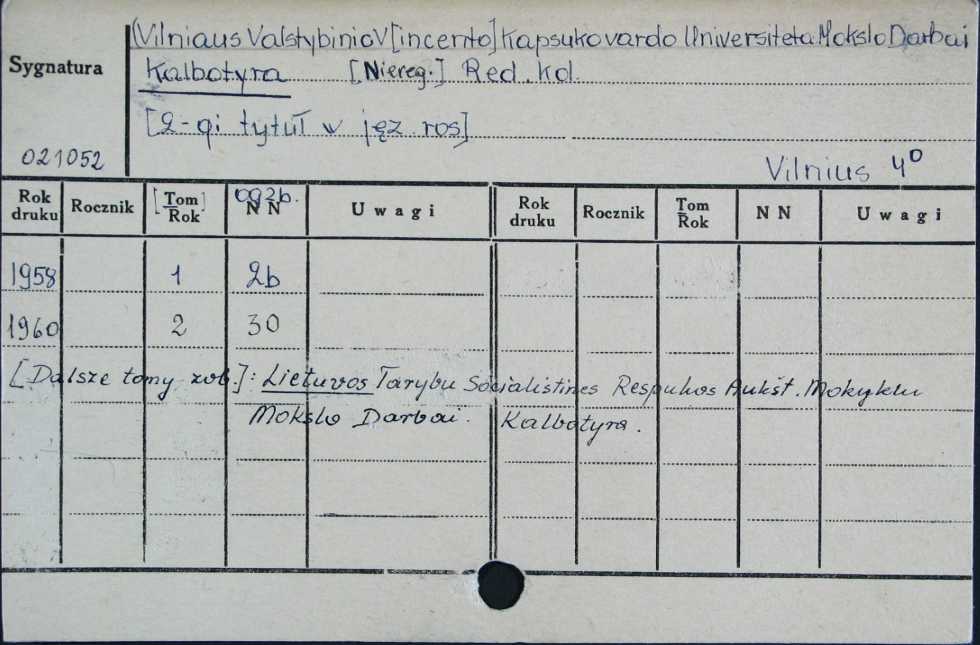 (Vilniaus Valstybinio V[incento] Kapsuko vardo Universiteta Mokslo Darbai
Sygnatura
Kalbotyra [Niereg.] Red. kol.
[2-gi tytuł w jęz. ros]
021052
Vilnius 4°
Rok druku Rocznik [Tom Rok] og.zb. NN Uwagi Rok druku Rocznik Tom Rok NN Uwagi
1958 1 26
1960 2 30
[Dalsze tomy zob.]: Lietuvos Tarybu Socialistines Respukos Aukšt. Mokyklu
Mokslo Darbai. Kalbotyra.